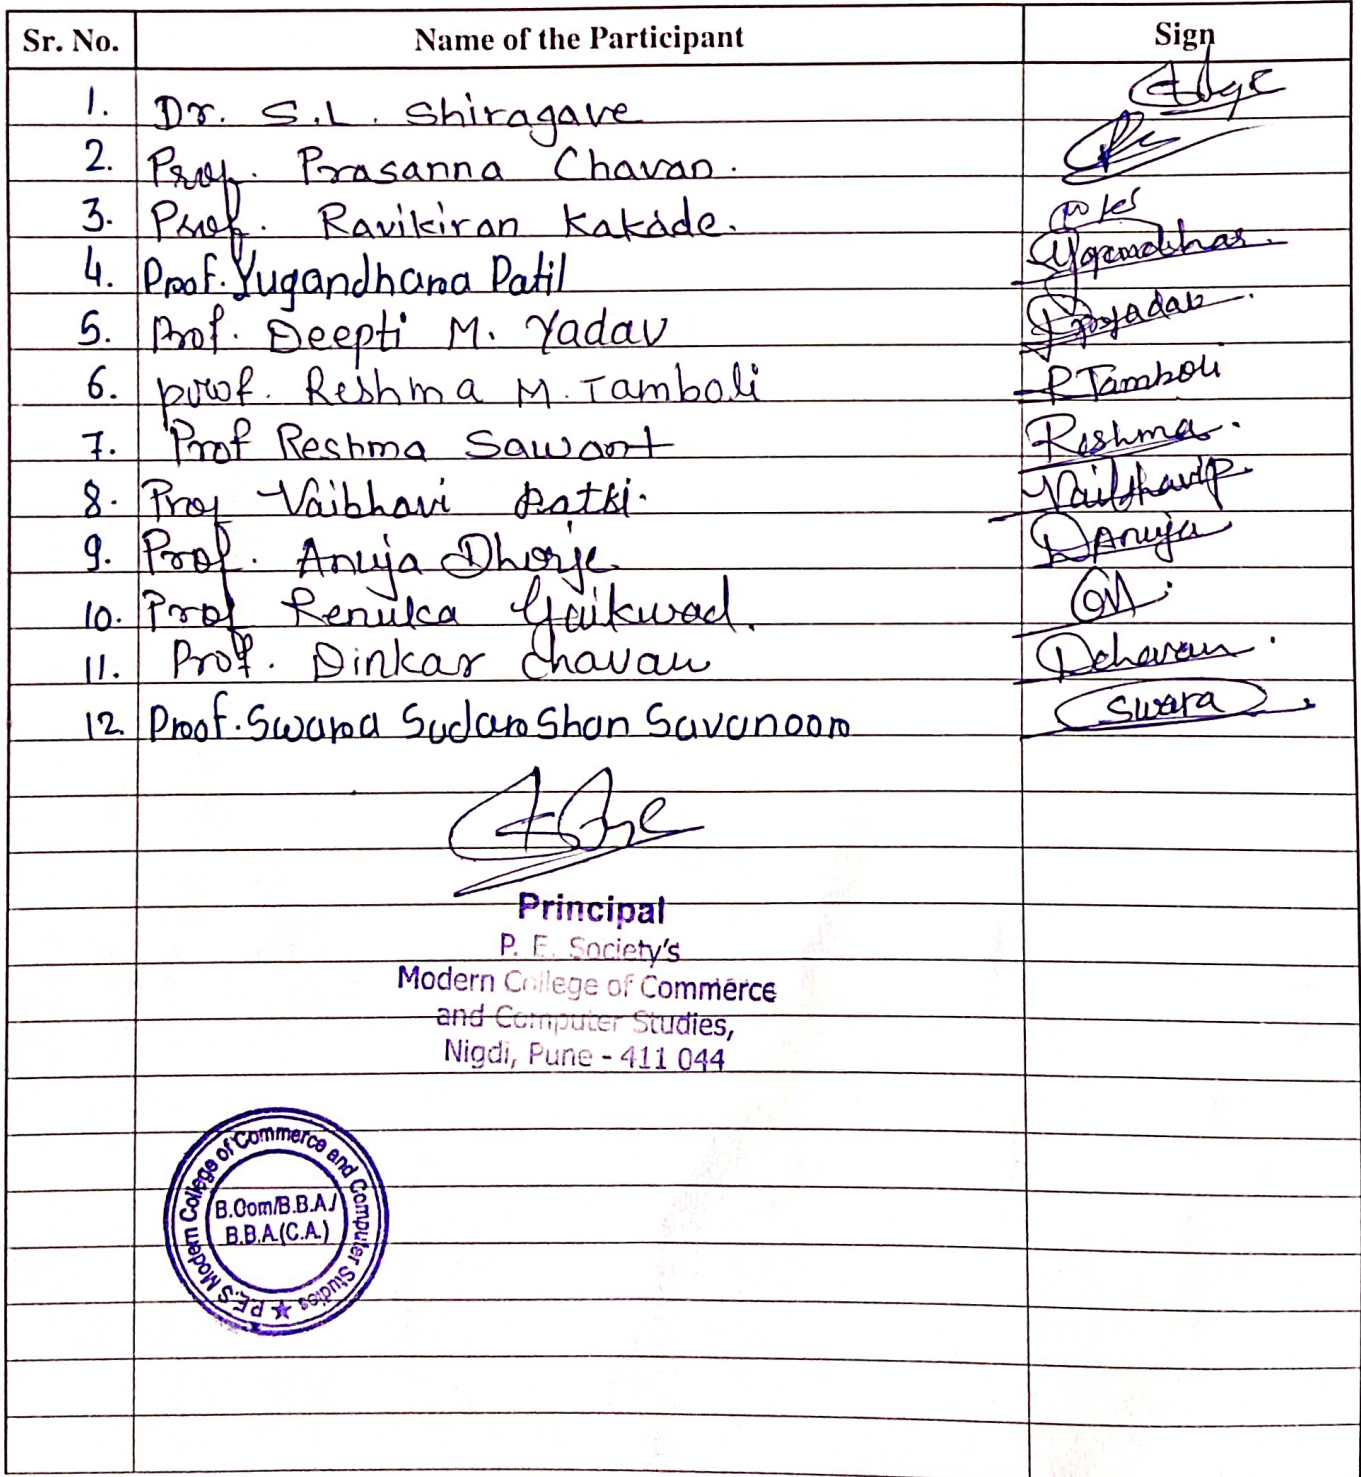 Sr. No. Name of the Participant Sign
1. Dr. S.L. Shiragave
2. Prof. Prasanna Chavan.
3. Prof. Ravikiran Kakade.
4. Prof. Yugandhara Patil
5. Prof. Deepti M. Yadav
6. prof. Reshma M. Tamboli RTamboli
7. Prof Reshma Sawant Reshma.
8. Prof Vaibhavi Patki. VaibhaviP.
9. Prof. Anuja Dhorje. DAnuja
10. Prof Renuka Gaikwad.
11. Prof. Dinkar Chavan DChavan.
12. Prof. Swara Sudarshan Savanoor Swara
Principal
P. E. Society's
Modern College of Commerce
and Computer Studies,
Nigdi, Pune - 411 044
P.E.S Modern College of Commerce and Computer Studies ★
B.Com/B.B.A/
B.B.A.(C.A.)